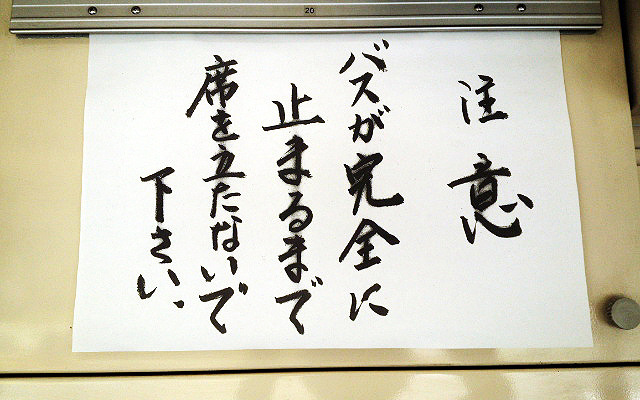 20
注意
バスが完全に
止まるまで
席を立たないで
下さい、